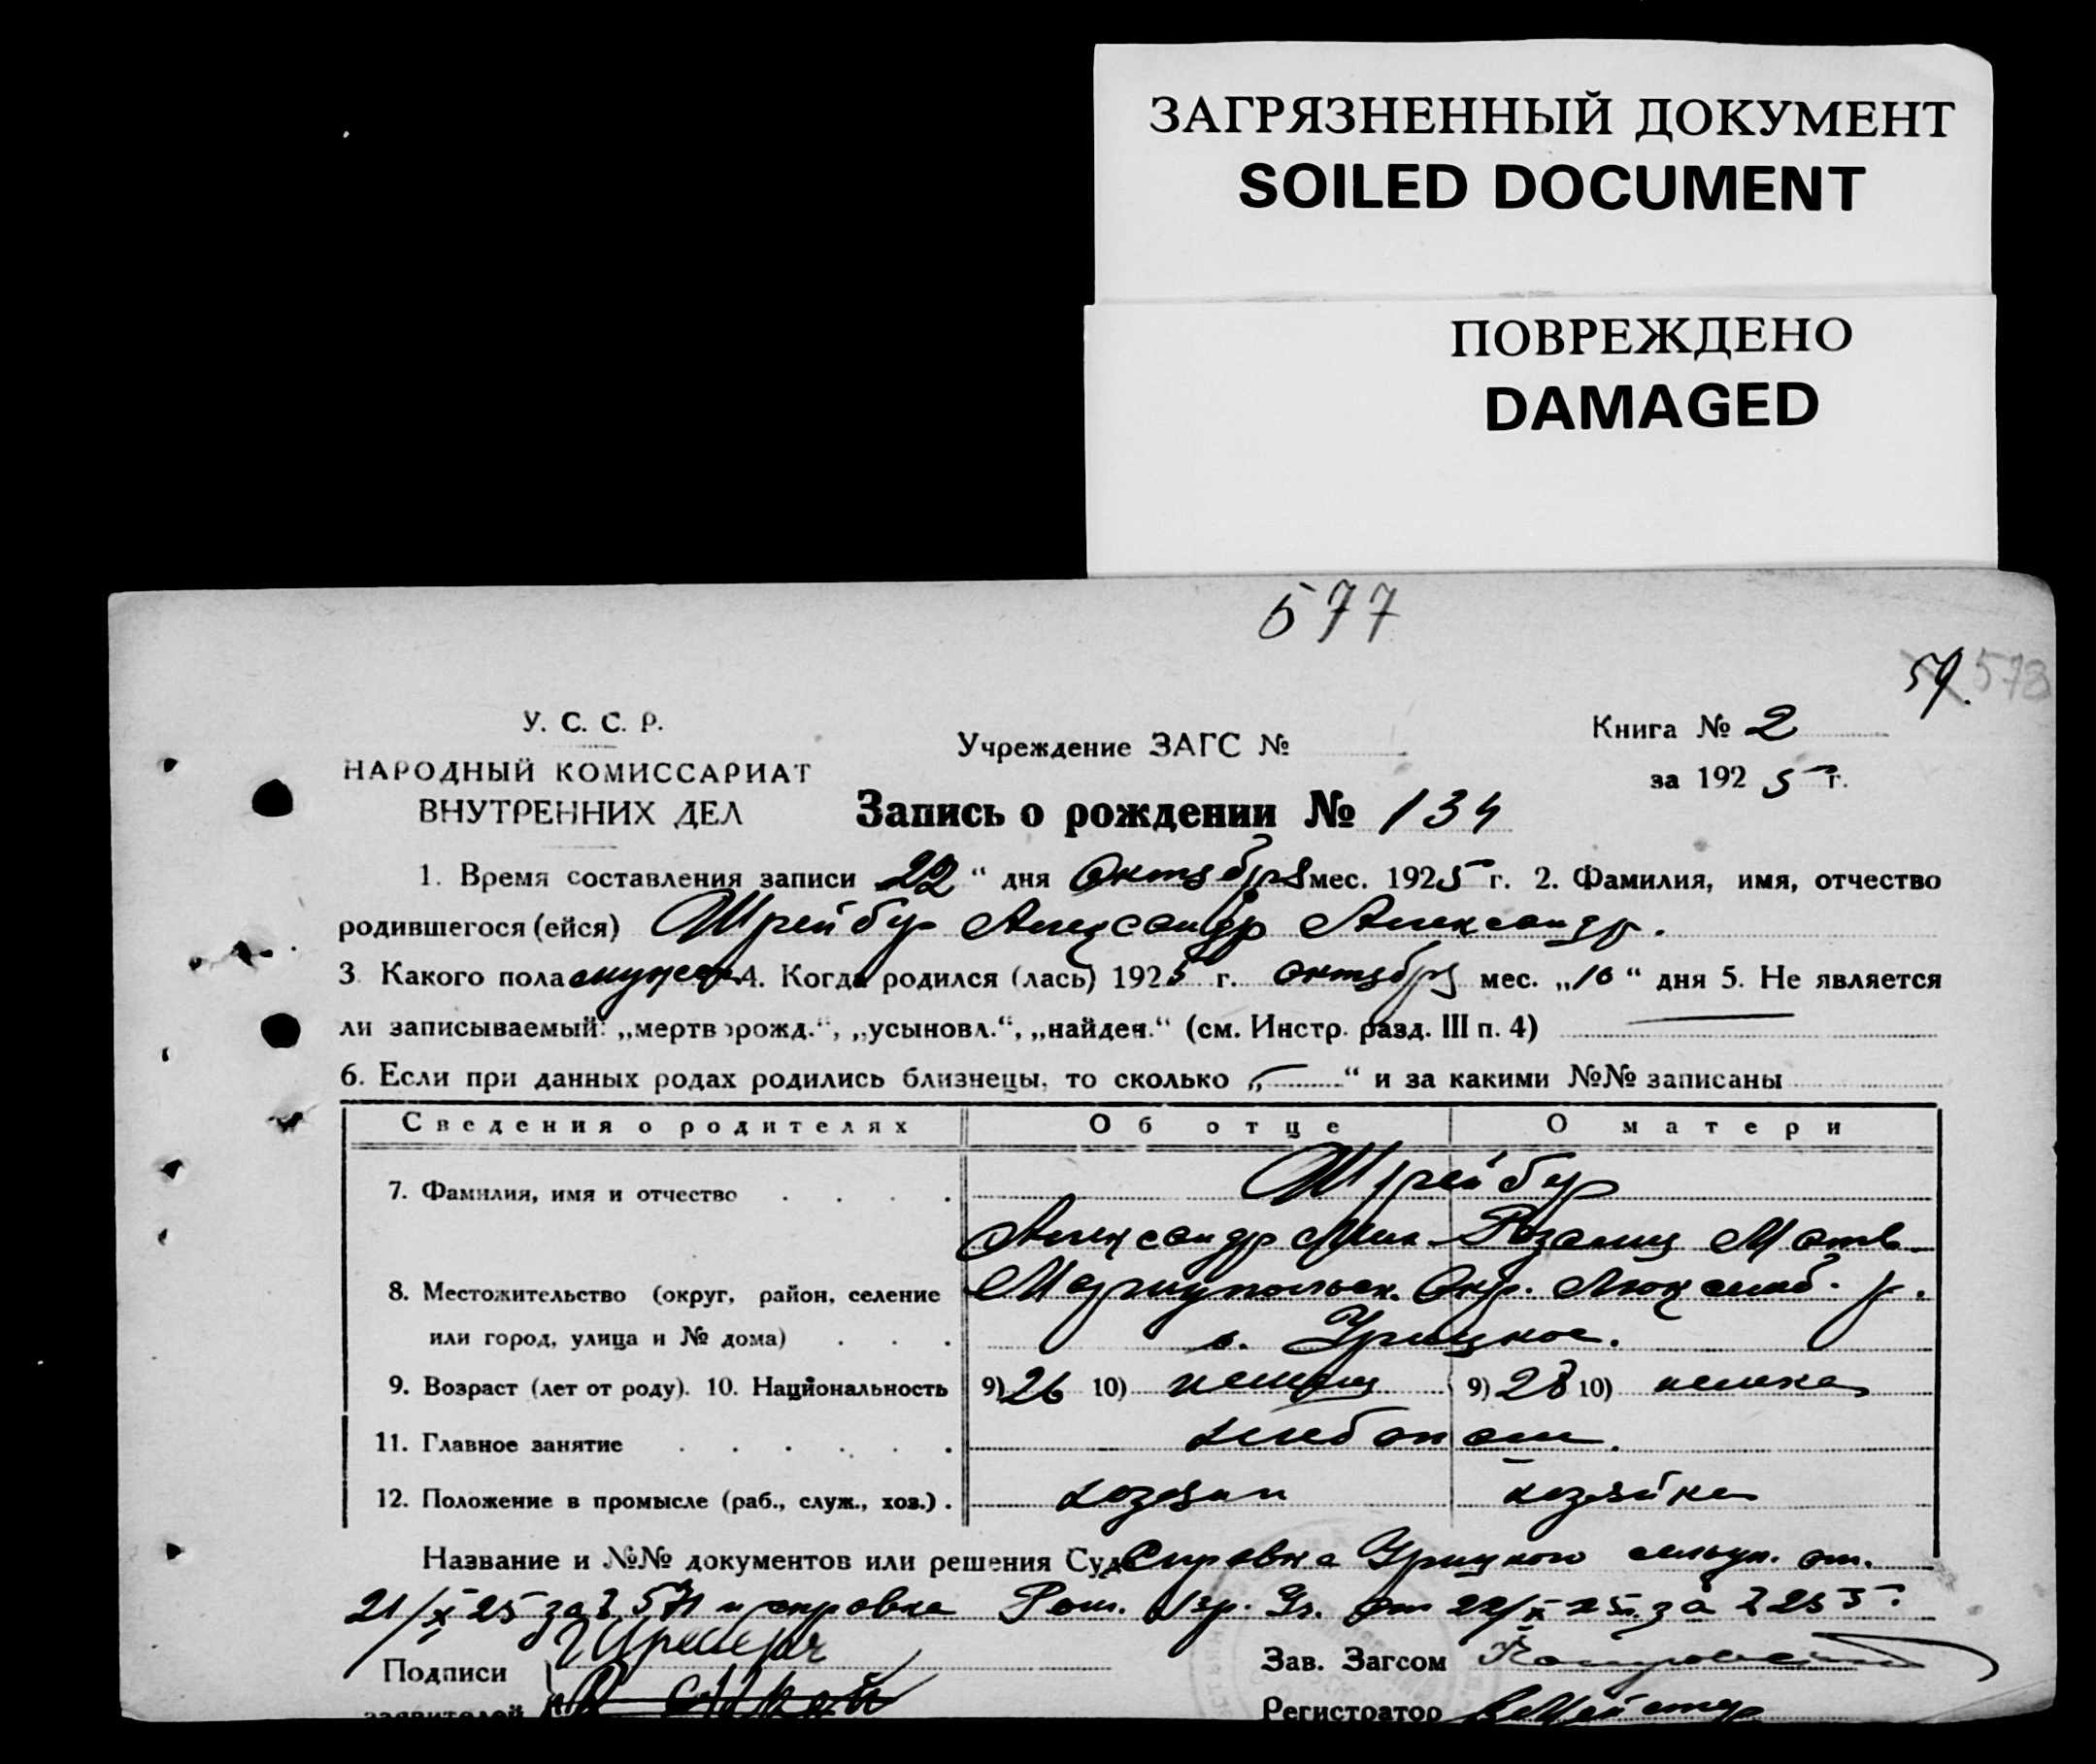 ЗАГРЯЗНЕННЫЙ ДОКУМЕНТ
SOILED DOCUMENT
ПОВРЕЖДЕНО
DAMAGED
577
59. 578
У. С. С. Р.
НАРОДНЫЙ КОМИССАРИАТ
ВНУТРЕННИХ ДЕЛ
Учреждение ЗАГС №
Книга № 2
за 1925 г.
Запись о рождении № 134
1. Время составления записи 22 “ дня Октября мес. 1925 г. 2. Фамилия, имя, отчество
родившегося (ейся) Шрейбер Александр Александр.
3. Какого пола мужск 4. Когда родился (лась) 1925 г. октября мес. „10“ дня 5. Не является
ли записываемый: „мертворожд.“, „усыновл.“, „найден.“ (см. Инстр. разд. III п. 4)
6. Если при данных родах родились близнецы, то сколько „ “ и за какими №№ записаны
Сведения о родителях Об отце О матери
7. Фамилия, имя и отчество Шрейбер
Александр Розалия Матв
8. Местожительство (округ, район, селение Мариупольск. Окр. Люксемб. р.
или город, улица и № дома) с. Урицкое.
9. Возраст (лет от роду). 10. Национальность 9) 26 10) немец 9) 28 10) немка
11. Главное занятие хлебопаш.
12. Положение в промысле (раб., служ., хоз.). хозяин хозяйка
Название и №№ документов или решения Суда Справка Урицкого от.
21/X 25 за № 571 и справка от 22/X 25 г. за № 255.
Подписи
заявителей
Зав. Загсом
Регистратор